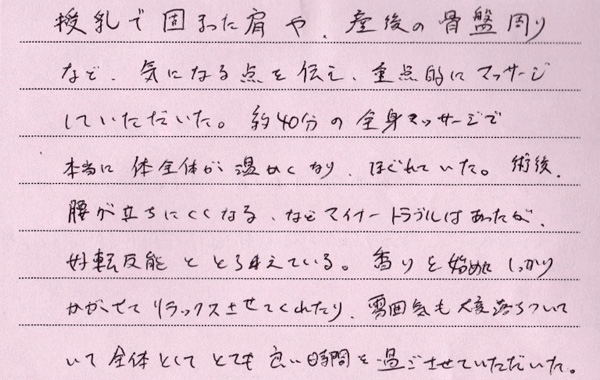 授乳で固まった肩や、産後の骨盤周り
など、気になる点を伝え、重点的にマッサージ
していただいた。約40分の全身マッサージで
本当に体全体が温かくなり、ほぐれていた。術後、
腰が立ちにくくなる、などマイナートラブルはあったが、
好転反能ととらえている。香りを始めにしっかり
かがせてリラックスさせてくれたり、雰囲気も大変落ちついて
いて全体としてとても良い時間を過ごさせていただいた。